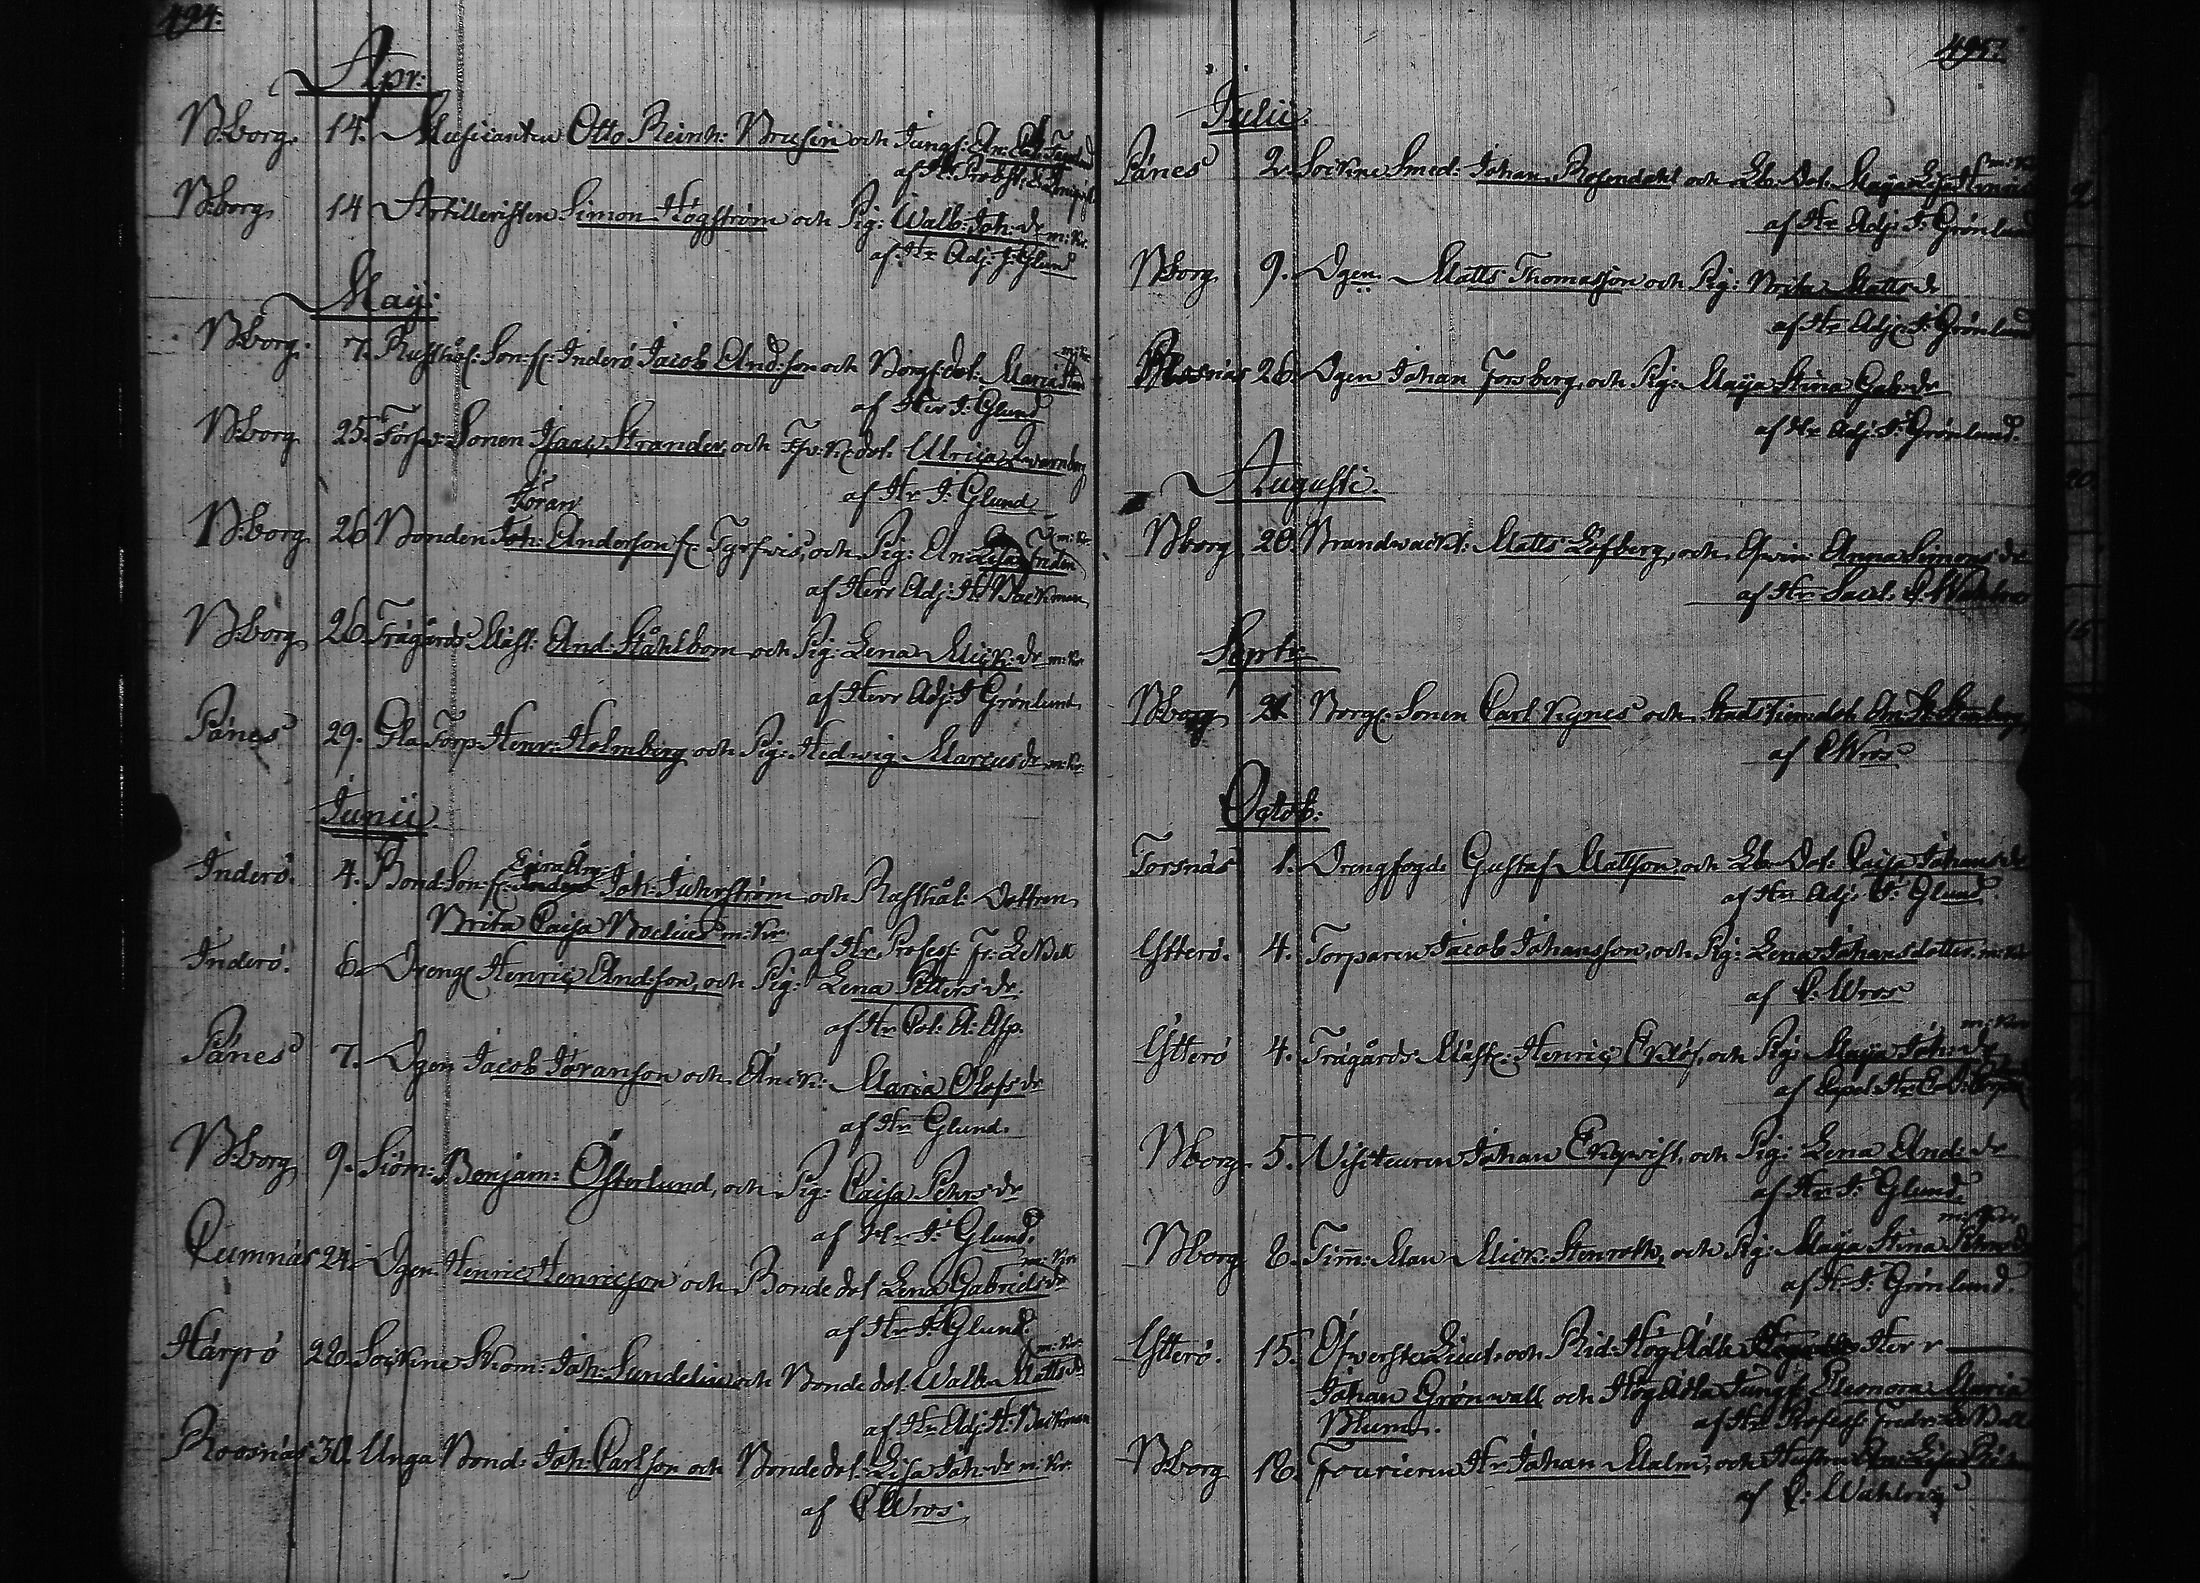 494.
Apr:
N:borg. 14. Musicanten Otto Reinh: Brusin och Jungf: An: Cat:
af Hr Probst:
N:borg. 14 Artilleristen Simon Högström och Pig: Walb: Joh: dr m: Kr.
af Hr Adj: J: Glund
May:
N:borg. 7. Rusthål: Son: fr: Inderö Jacob And:son och Borg: dot: Maria m: Kr
af Herr J: Glund
N:borg. 25. Förnw: Sonen Isaac Strander, och dot. Ulrica
af Hr J: Glund
Jöran
N:borg. 26 Bonden Joh: Anderson fr: Tyrfwis, och Pig: An: Lisa Inden m: Kr.
af Herr Adj: H: Backman
N:borg. 26. Trägårds Mäst: And: Ståhlbom och Pig: Lena Mick: dr m: Kr
af Herr Adj: J Grönlund
Pånes 29. Gla Torp: Henr: Holmberg och Pig: Hedwig Marcus dr m: Kr.
Junii
Inderö. 4. Bond: Son: fr: Joh: Juhrström och Rusthål: Dottren
Brita Caisa Boelius m: Kr.
af Hr Profess: Fr: LeBell
Inderö. 6. Dreng: Henric Andson, och Pig: Lena Petters dr.
af Hr Col: A: Asp.
Pånes 7. Dgen Jacob Jöranson och Änck: Maria Olofs dr
af Hr Glund.
N:borg 9. Siöm: Benjam: Österlund, och Pig: Caisa Pehrs dr
af Hr J: Glund.
Cumnäs 24. Dgen Henric Henricson och Bonde dot Lena Gabriels dr m: Kr
af Hr J: Glund.
Härpö 28. Sockne Skom: Joh: Sundelin och Bonde dot: Walb: Matts dr m: Kr
af Hr Adj: H: Backman
Roosnäs 30. Unga Bond: Joh: Carlson och Bonde dot: Lisa Joh: dr m: Kr.
af C Wros
495.
Julii.
Pånes 2. Sockne Smed: Johan Rosendahl och Lb: Dot. Maja Lisa m: Kr
af Hr Adj: J: Grönlund
N:borg 9. Dgen Matts Thomasson och Pig: Brita Matts dr
af Hr Adj: J: Grönlund
26. Dgen Johan Forsberg, och Pig: Maja Stina Gab: dr
af Hr Adj: J: Grönlund.
Augusti.
N:borg 20. Brandwackt: Matts Löfberg, och Anna Simons dr
af Hr
Septr:
N:borg 21. Borg: Sonen Carl Kynes och Stads dot. An: St:
af C Wros
Octob:
Torsnäs 1. Drengfogde Gustaf Mattson, och Lb: Dot: Caisa Johans dr
af Hr Adj: J: Glund.
Ytterö. 4. Torparen Jacob Johansson, och Pig: Lena Johans dotter. m: Kr
af C: Wros
Ytterö 4. Trägårds Mäst: Henric Eklöf, och Pig: Maja Joh: dr m: Kr
af
N:borg. 5. Visiteuren Johan Enqwist, och Pig: Lena And: dr
af Hr J: Glund.
N:borg 8. Tim: Man Mick: Stenroth, och Pig: Maja Stina m: Kr
af H. J: Grönlund.
Ytterö. 15. Öfverste Lieut: och Rid: Hög Ädle Herr
Johan Grönwall och Hög Ädla Jungf: Eleonora Maria
Blum.
af Hr Profess: Fredr: LeBell
N:borg 18. Fourieren Hr Johan Malm, och Hustru An: Lisa
af C: Wahlros